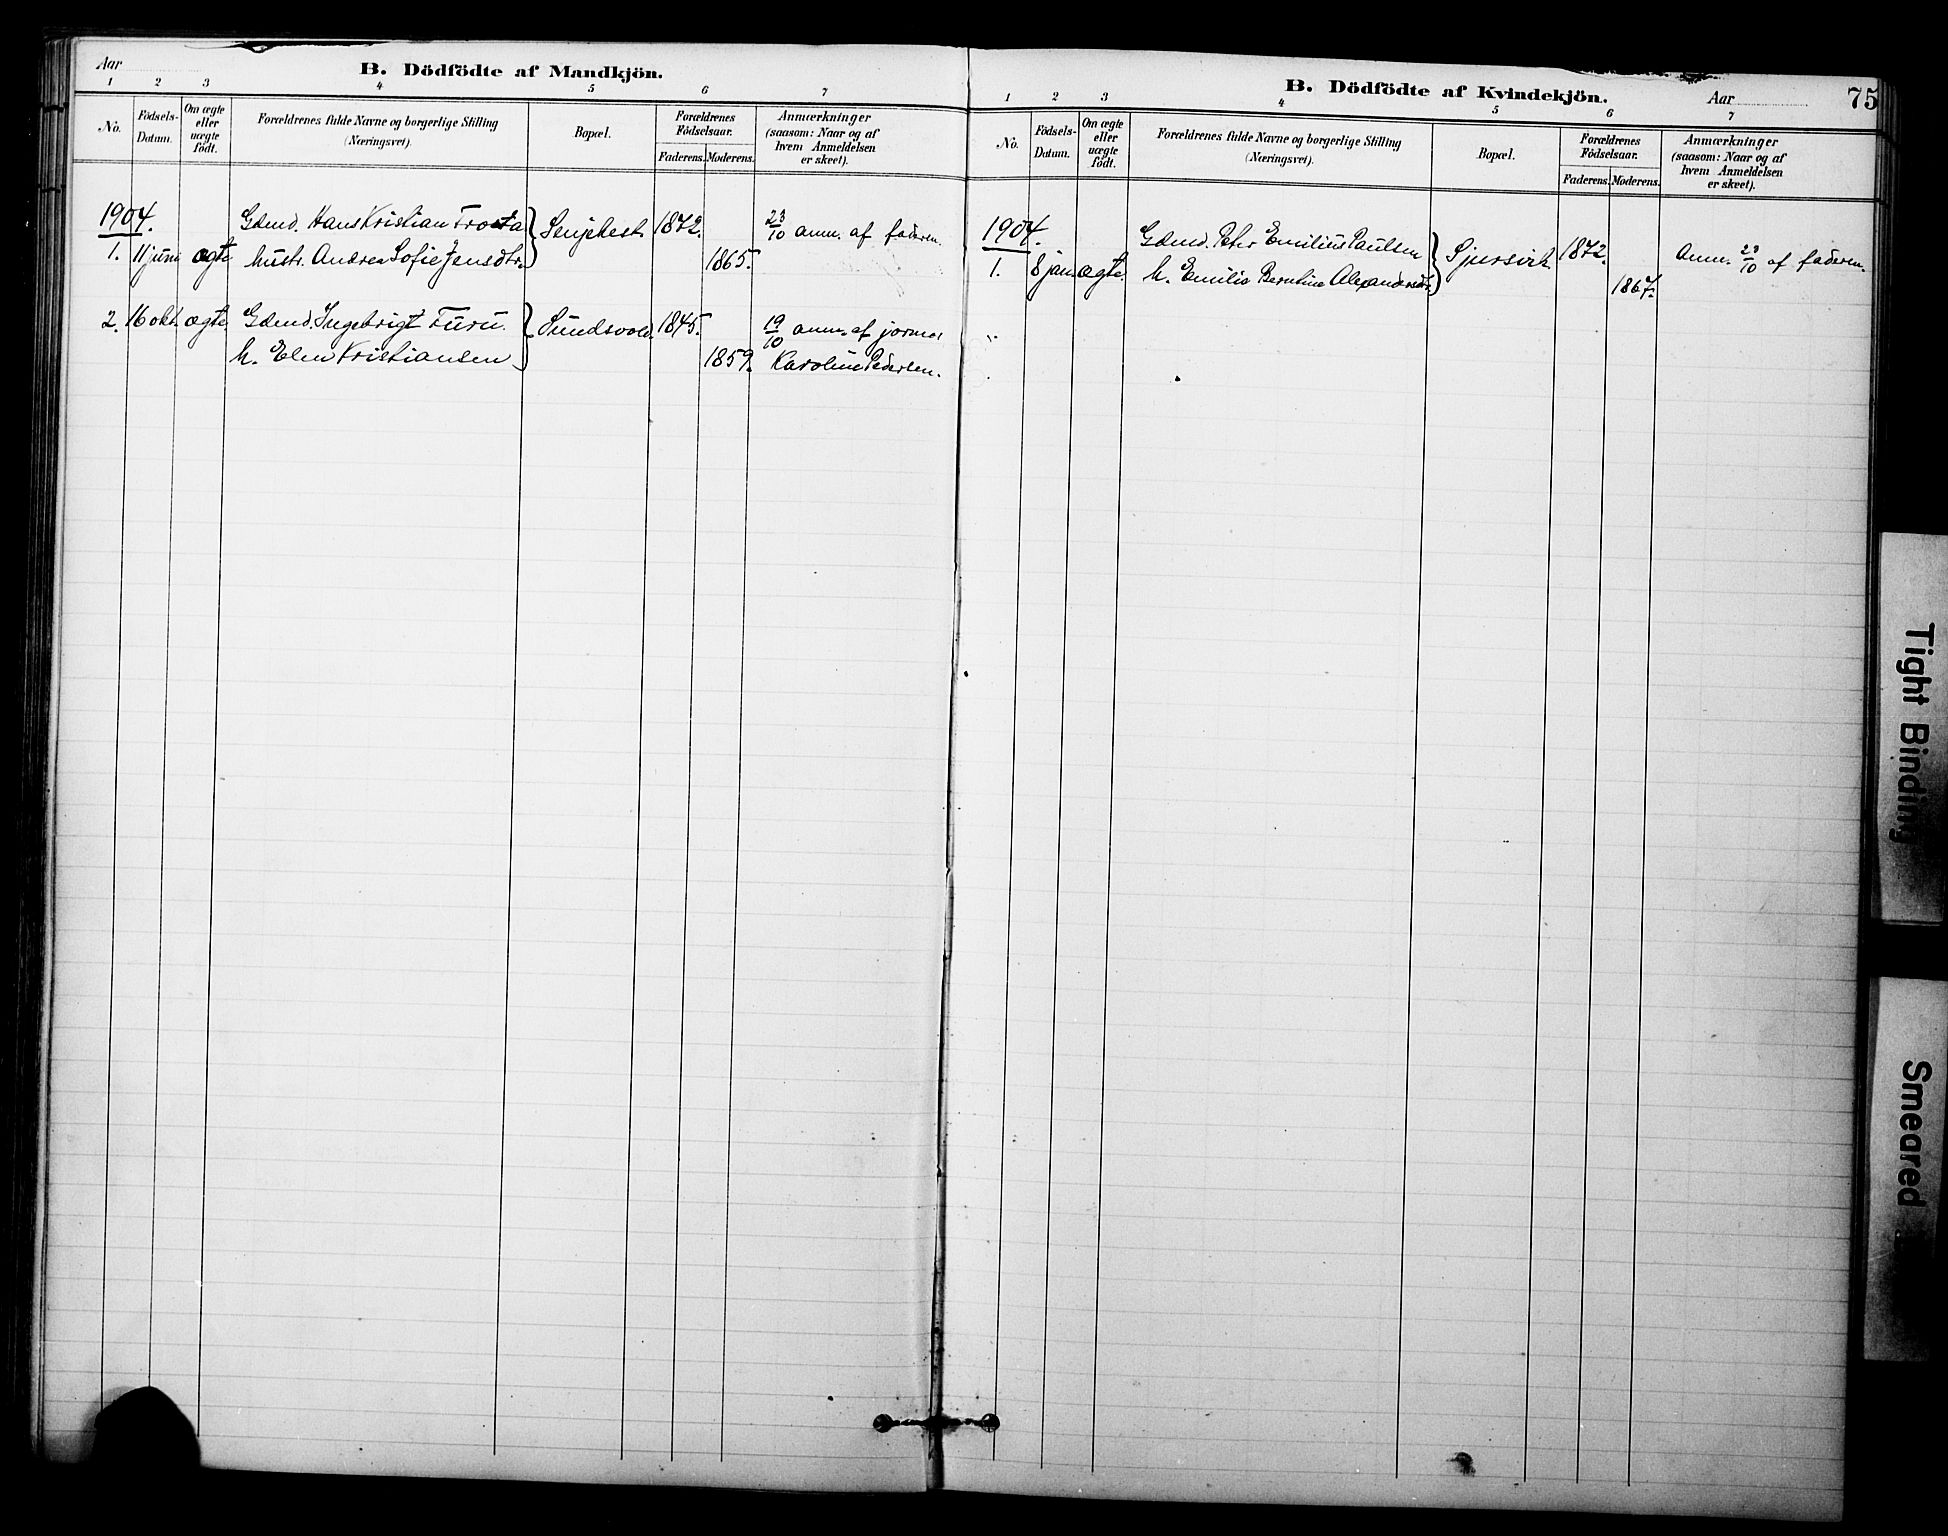 Aar
B. Dödfödte af Mandkjön.
1 2 3 4 5 6 7
No.
Födsels-
Datum.
Om ægte
eller
uægte
födt.
Forældrenes fulde Navne og borgerlige Stilling
(Næringsvei).
Bopæl.
Forældrenes
Födselsaar.
Faderens. Moderens.
Anmærkninger
(saasom: Naar og af
hvem Anmeldelsen
er skeet).
1904.
Gdmd. Hans Kristian Trosta } Senjehest. 1872. 23/10 anm. af faderen.
1. 11 juni ægte hustr. Andrea Sofie Jensdtr. 1865.
2. 16 okt. ægte Gdmd. Ingebrigt Furu. } Sundsvold. 1845. 19/10 anm. af jormor
h. Elen Kristiansen 1859. Karoline Pedersen.
B. Dödfödte af Kvindekjön.
Aar
75
1 2 3 4 5 6 7
No.
Födsels-
Datum.
Om ægte
eller
uægte
födt.
Forældrenes fulde Navne og borgerlige Stilling
(Næringsvei).
Bopæl.
Forældrenes
Födselsaar.
Faderens. Moderens.
Anmærkninger
(saasom: Naar og af
hvem Anmeldelsen
er skeet).
1904.
Gdmd. Peter Emilius Paulsen } Sjursvik 1872. Anm. 23/10 af faderen.
1. 8 jan. ægte. h. Emilie Berntine Alexandersdtr. 1867.
Tight Binding
Smeared